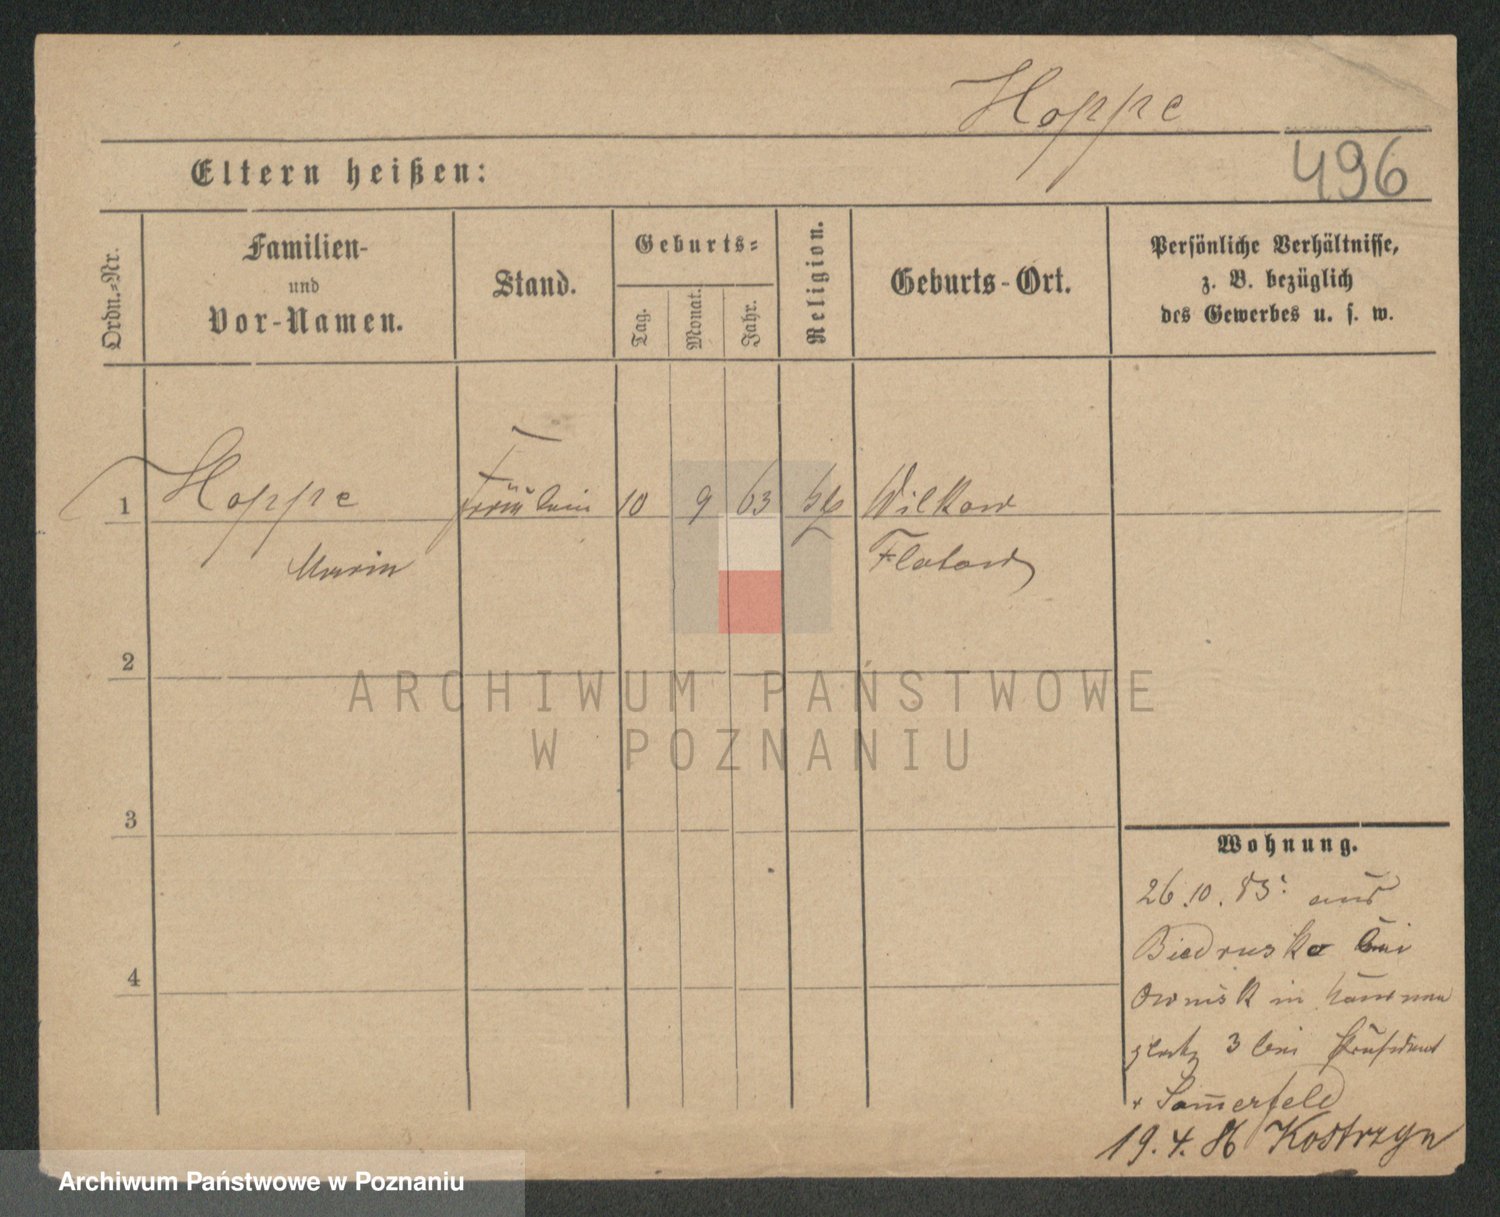 Hoppe
496
Eltern heißen:
Ordn.-Nr.
Familien-
und
Vor-Namen.
Stand.
Geburts-
Tag.
Monat.
Jahr.
Religion.
Geburts-Ort.
Persönliche Verhältnisse,
z. B. bezüglich
des Gewerbes u. s. w.
1 Hoppe Fräulein 10 9 63 Wilkow
Marie Flatow
2
3
4
Wohnung.
26.10.85. aus
Biedrusko bei
Owinsk in
platz 3 bei Präsident
Som̄erfeld
19.4.86 Kostrzyn
ARCHIWUM PAŃSTWOWE
W POZNANIU
Archiwum Państwowe w Poznaniu